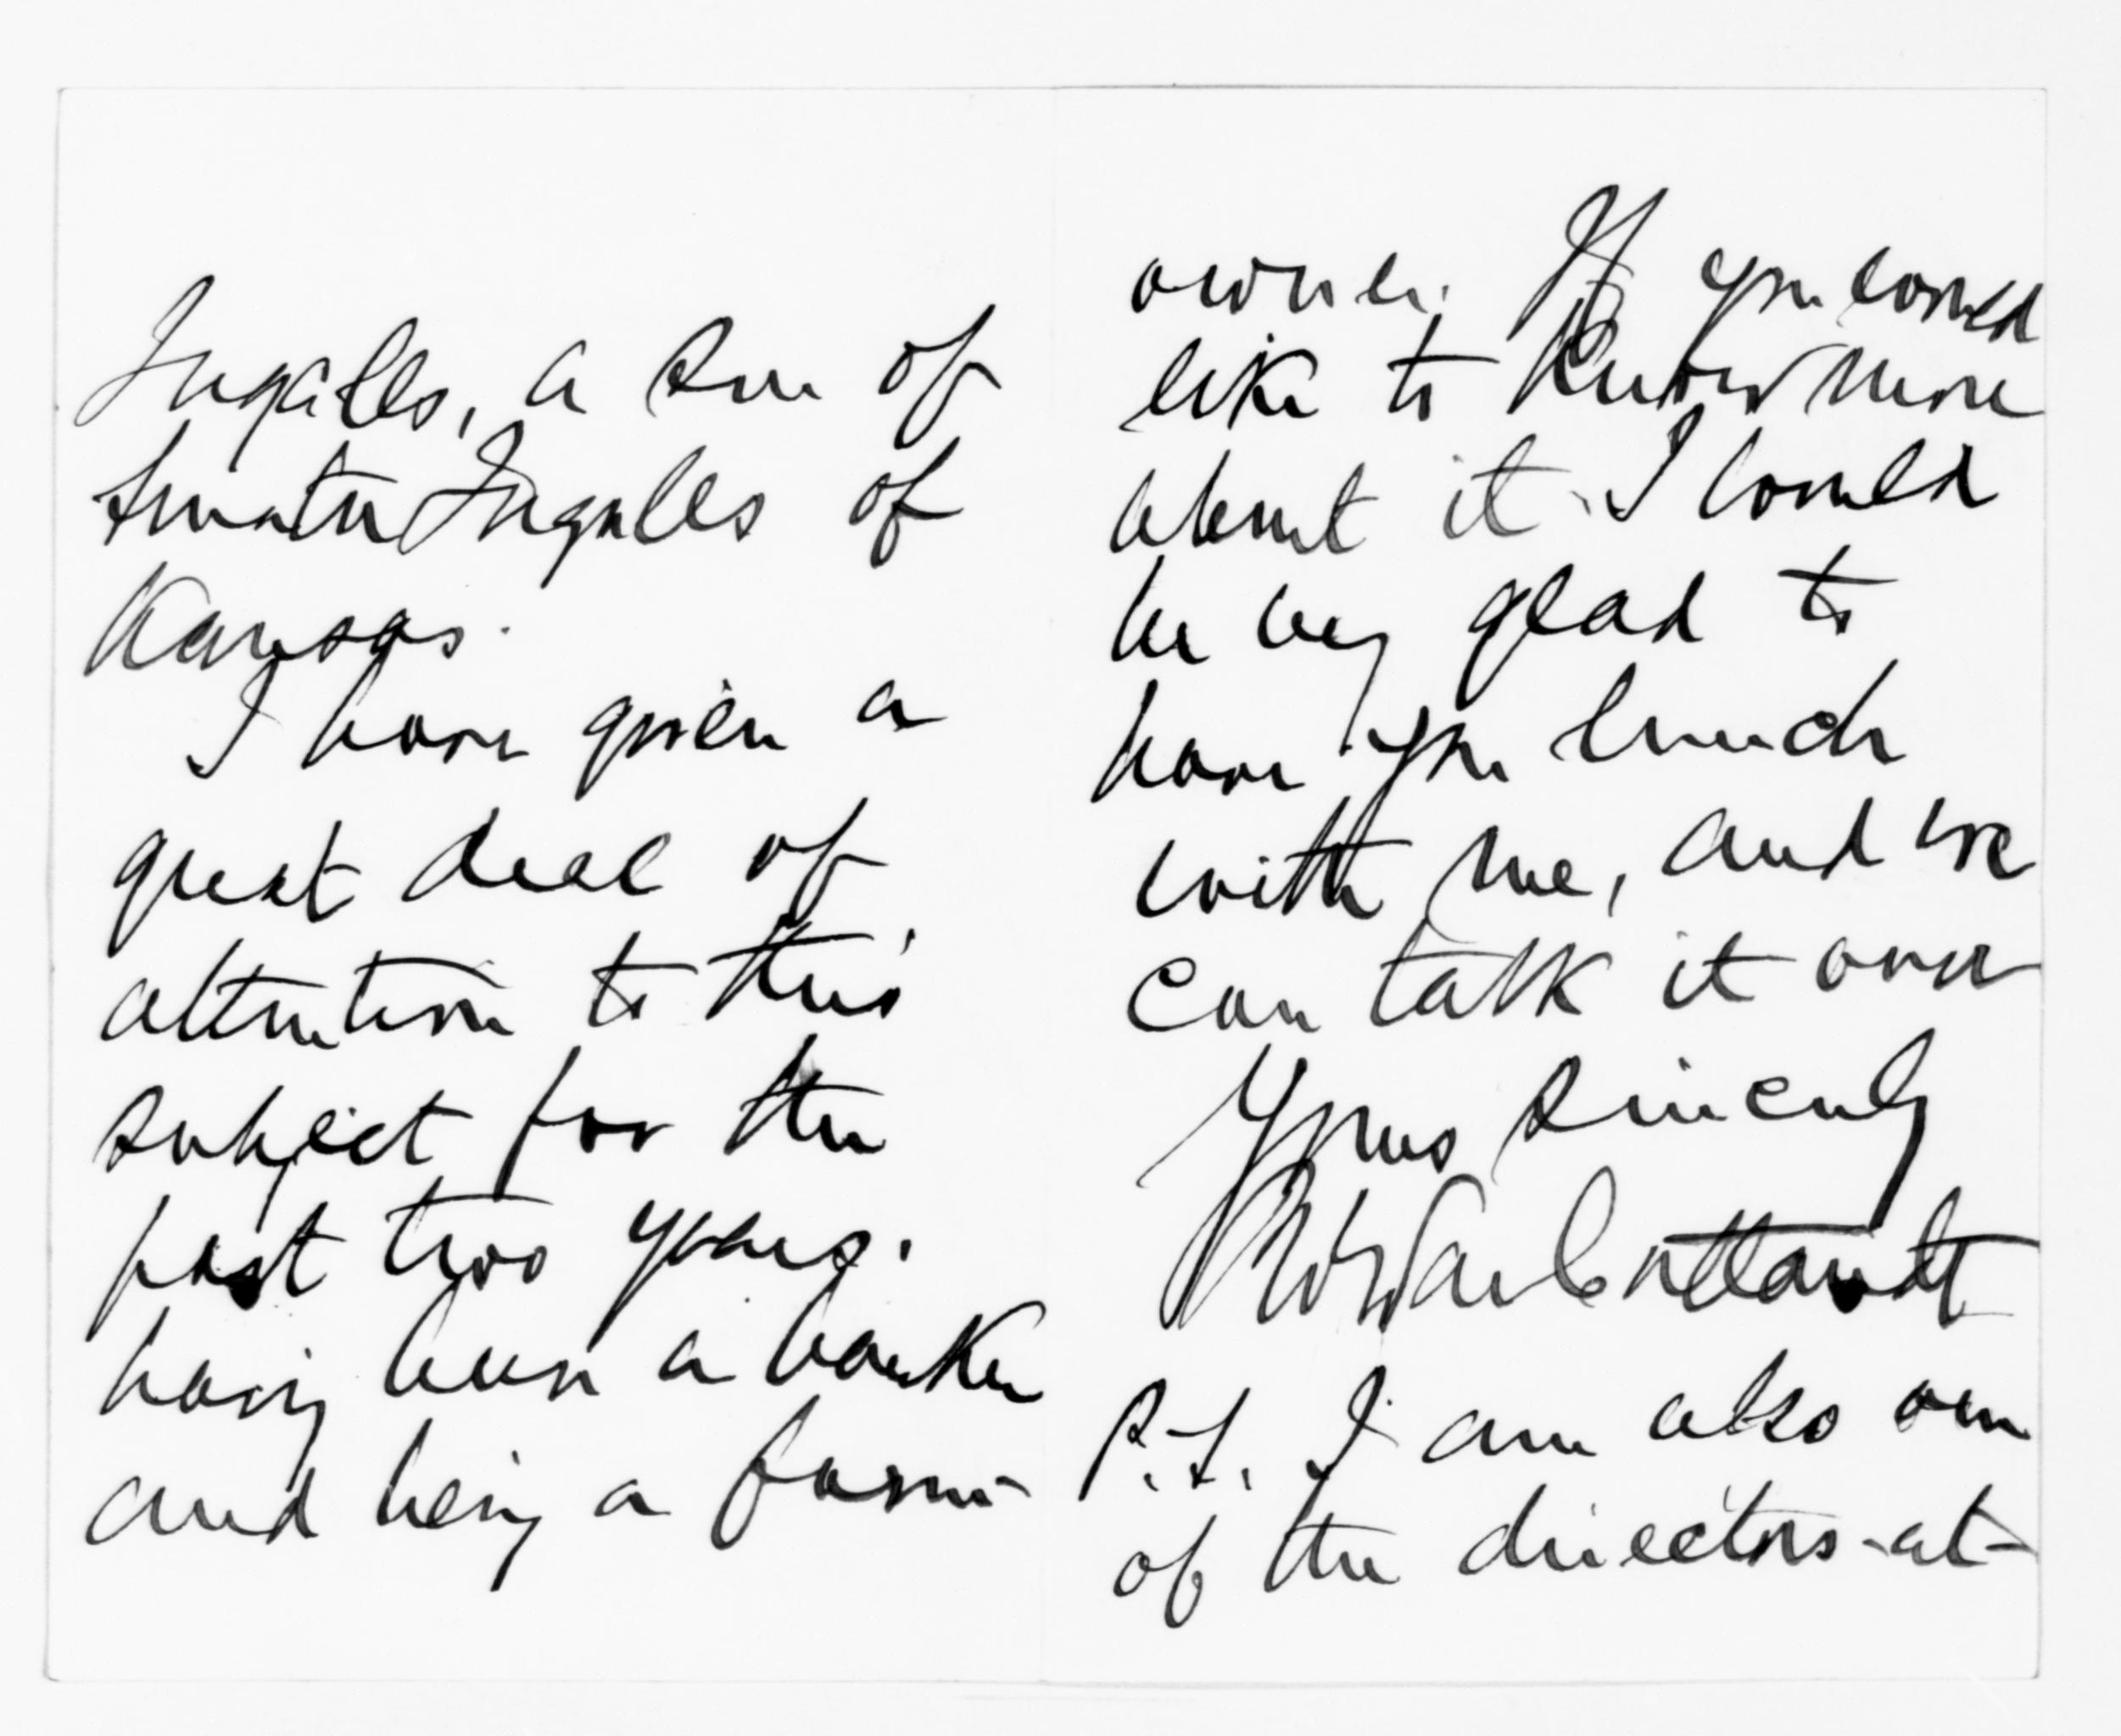 Ingalls, a son of
Senator Ingalls of
Kansas.
I have given a
great deal of
attention to this
subject for the
past two years.
having been a banker
and being a farm-
owner. If you would
like to know more
about it I would
be very glad to
have you lunch
with me, and we
can talk it over
Yours sincerely
P.S. I am also one
of the directors-at-